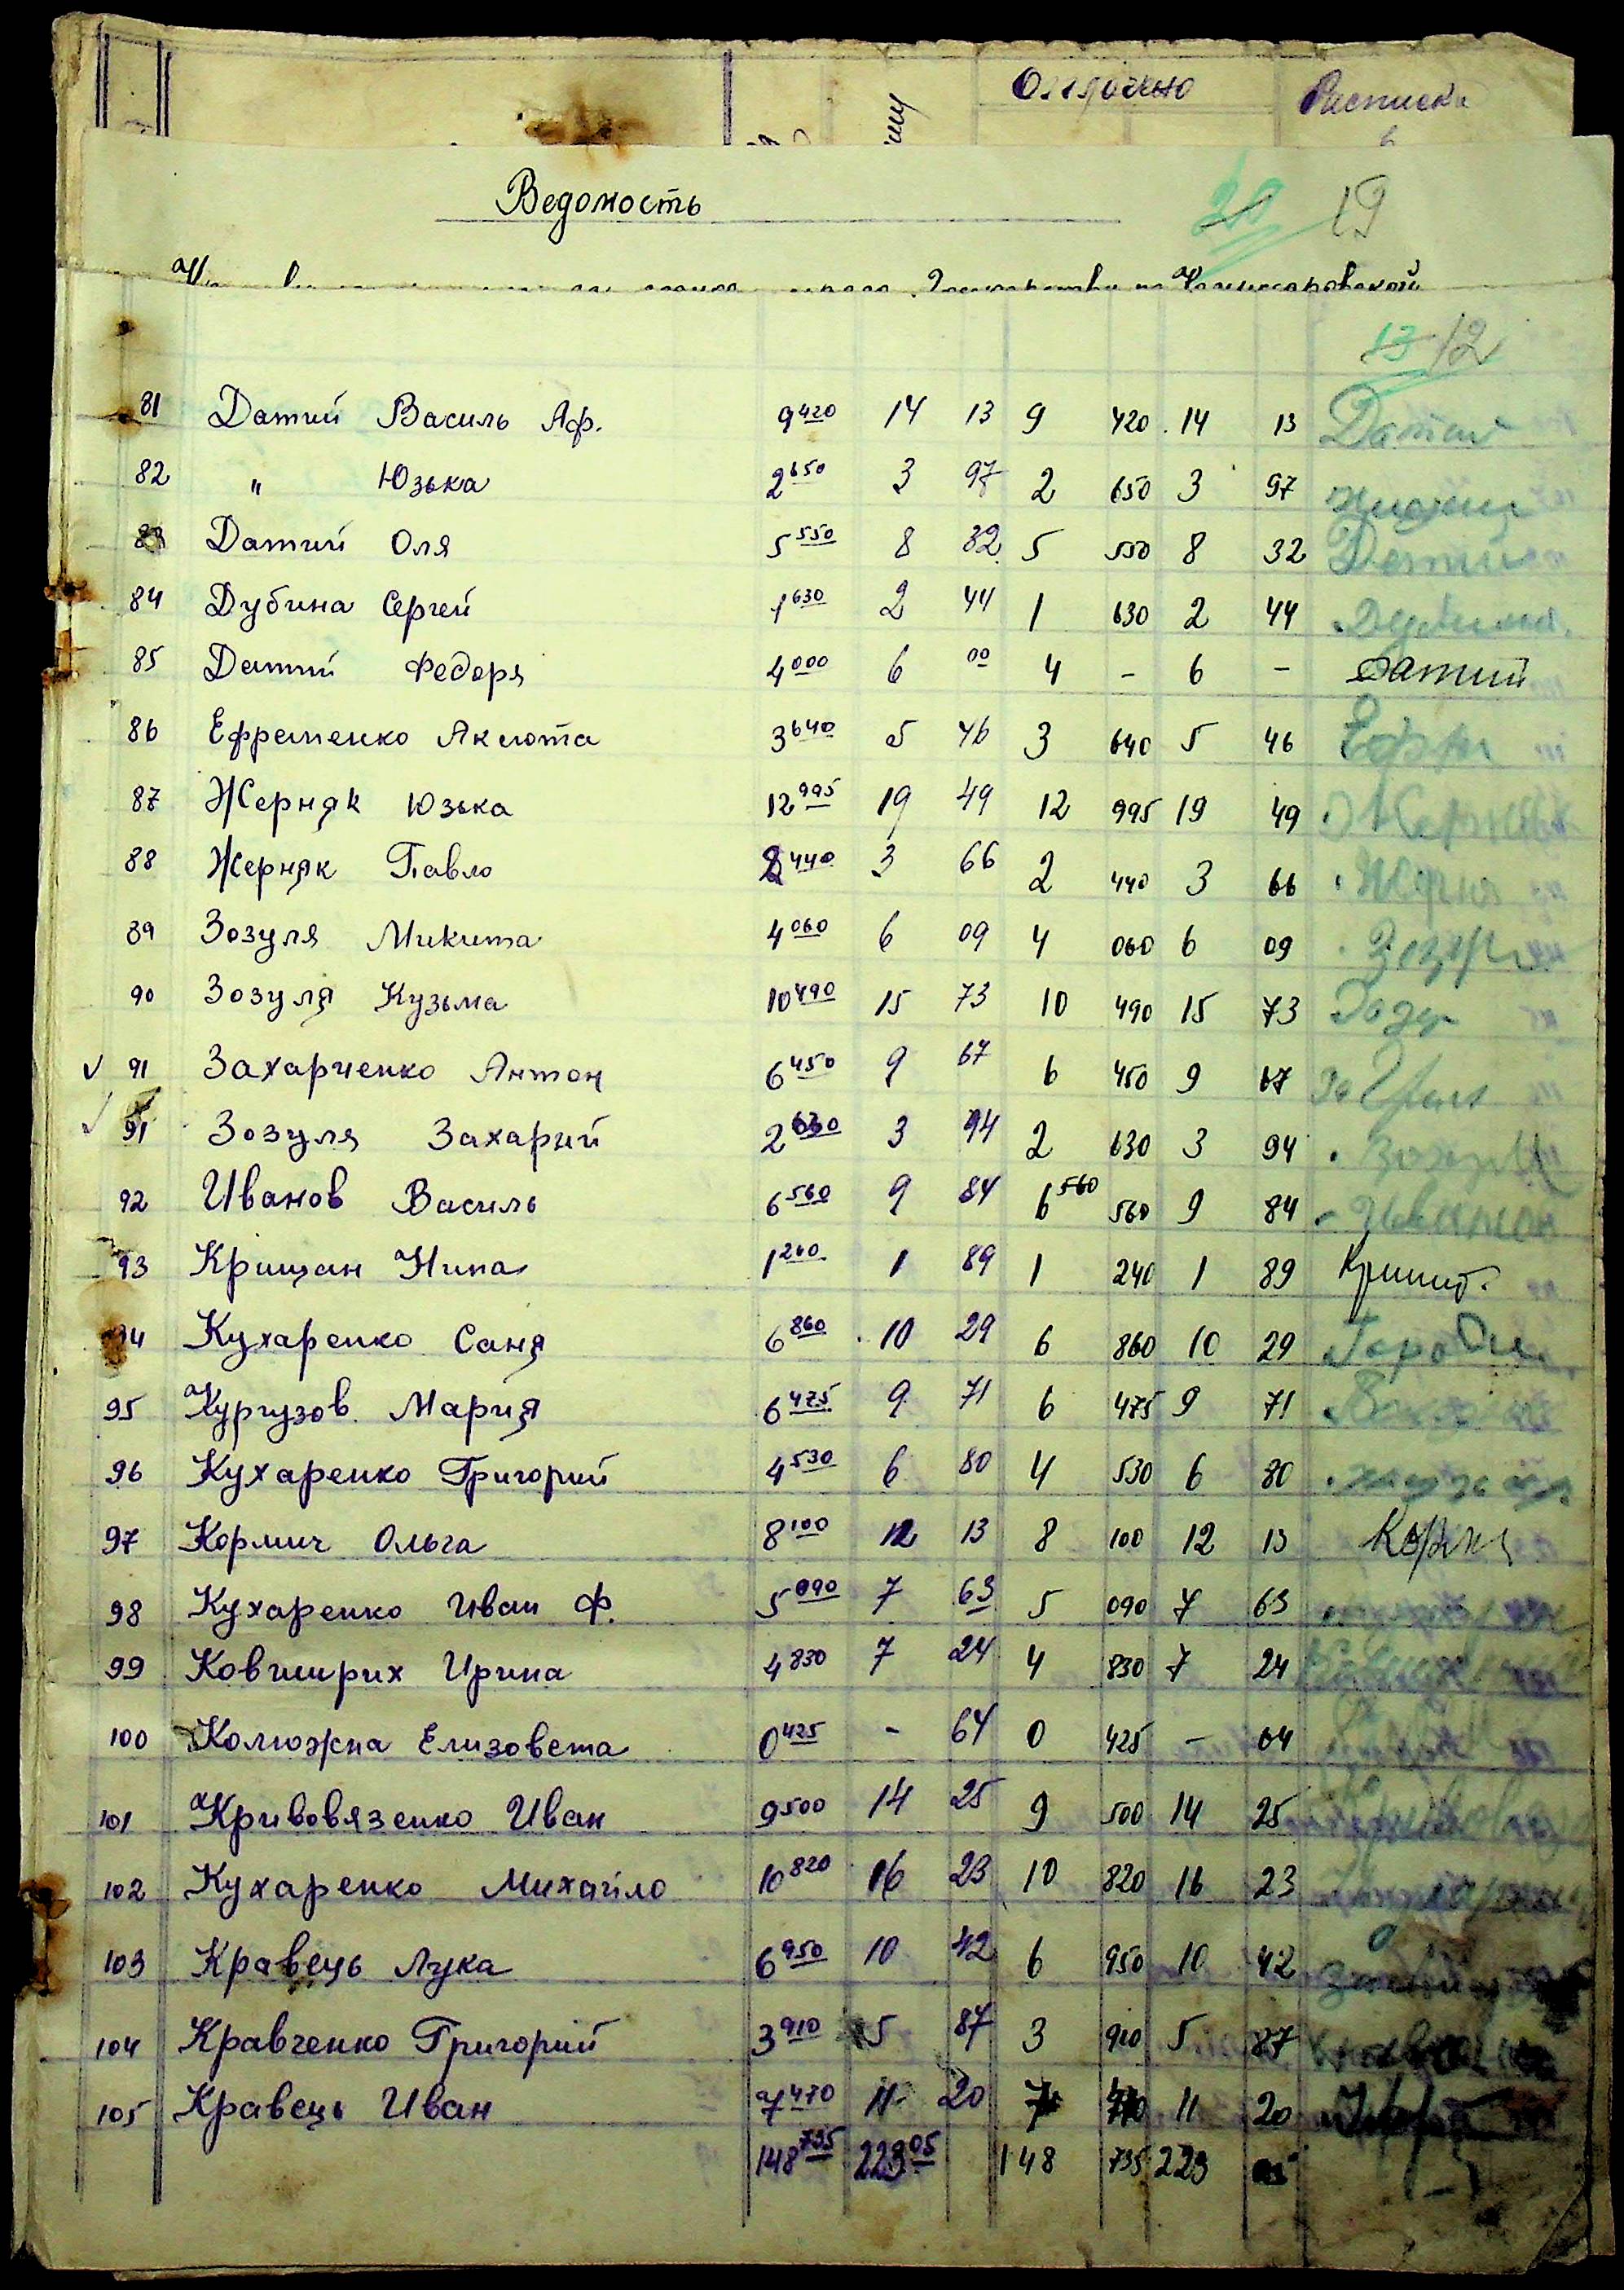 Оплачено Расписка
Ведомость 20 19
13 12
81 Датий Василь Аф. 9 420 14 13 9 420 14 13 Датий
82 " Юзька 2 650 3 97 2 650 3 97
83 Датий Оля 5 550 8 32 5 550 8 32 Датий
84 Дубина Сергей 1 630 2 44 1 630 2 44 Дубина
85 Датий Федоря 4 000 6 00 4 – 6 – Датий
86 Ефременко Аксюта 3 640 5 46 3 640 5 46
87 Жерняк Юзька 12 995 19 49 12 995 19 49
88 Жерняк Павло 2 440 3 66 2 440 3 66
89 Зозуля Микита 4 060 6 09 4 060 6 09
90 Зозуля Кузьма 10 490 15 73 10 490 15 73
✓ 91 Захарченко Антон 6 450 9 67 6 450 9 67
✓ 91 Зозуля Захарий 2 630 3 94 2 630 3 94
92 Иванов Василь 6 560 9 84 6 560 560 9 84
93 Крищан Нина 1 260 1 89 1 240 1 89
94 Кухаренко Саня 6 860 10 29 6 860 10 29
95 Кургузов Мария 6 475 9 71 6 475 9 71
96 Кухаренко Григорий 4 530 6 80 4 530 6 80
97 Кормич Ольга 8 100 12 13 8 100 12 13
98 Кухаренко Иван Ф. 5 090 7 63 5 090 7 63
99 Ковширих Ирина 4 830 7 24 4 830 7 24
100 Колюжна Елизовета 0 425 - 64 0 425 – 64
101 Кривовязенко Иван 9 500 14 25 9 500 14 25
102 Кухаренко Михайло 10 820 16 23 10 820 16 23
103 Кравець Лука 6 950 10 42 6 950 10 42
104 Кравченко Григорий 3 910 5 87 3 910 5 87
105 Кравець Иван 7 470 11 20 7 470 11 20
148 735 223 05 148 735 223 05